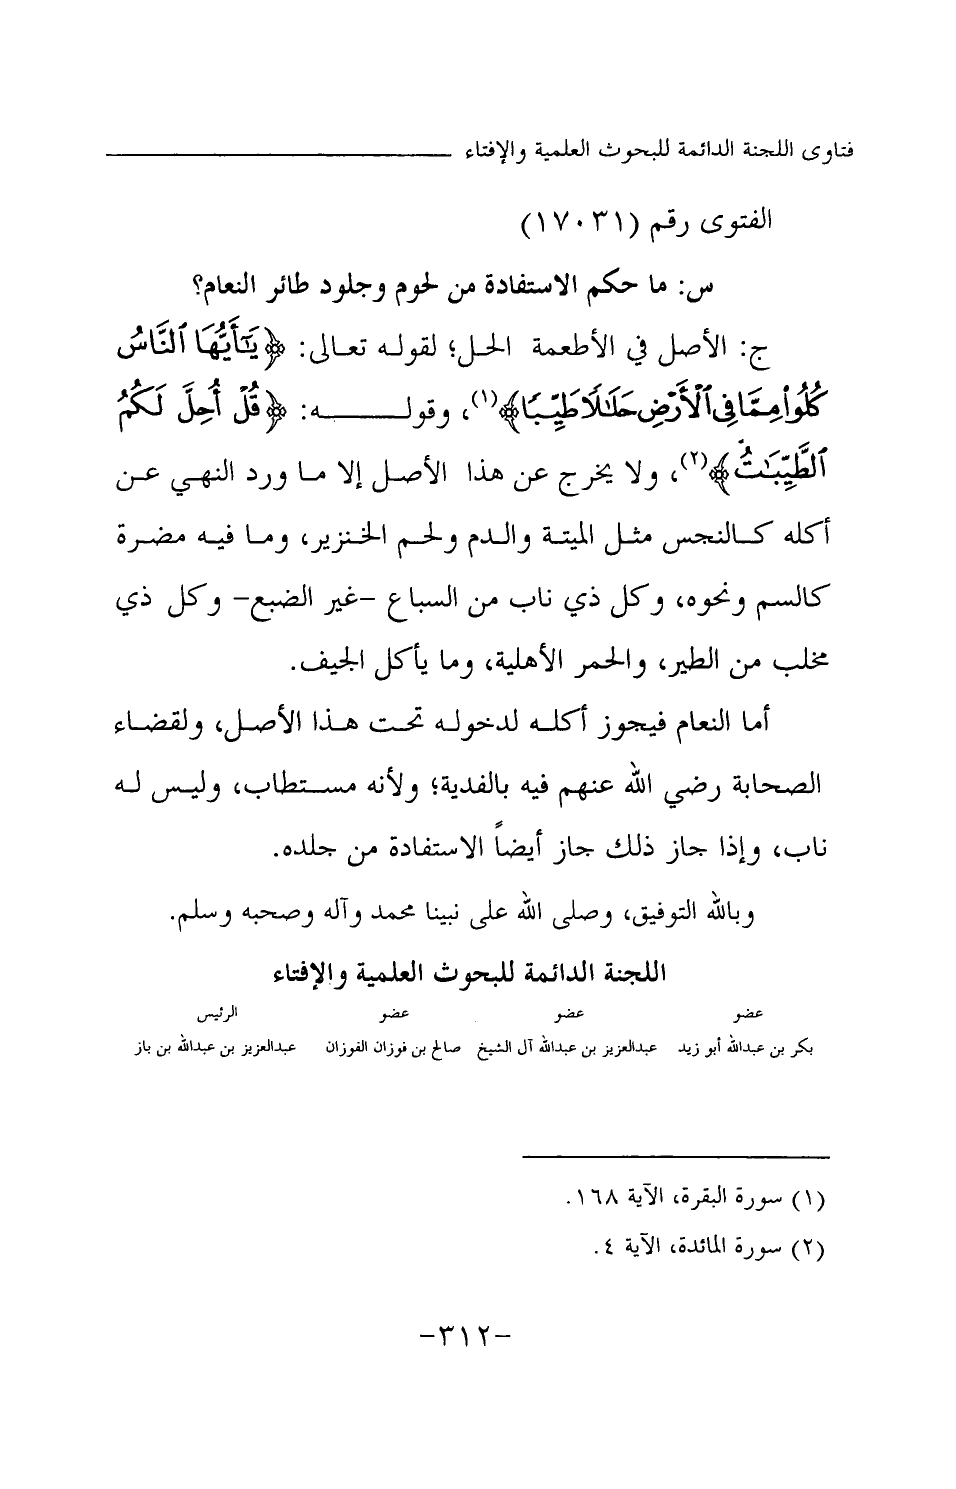 فتاوى اللجنة الدائمة للبحوث العلمية والإفتاء
الفتوى رقم (١٧٠٣١)
س: ما حكم الاستفادة من لحوم وجلود طائر النعام؟
ج: الأصل في الأطعمة الحل؛ لقوله تعالى: ﴿يَٰٓأَيُّهَا ٱلنَّاسُ
كُلُوا۟ مِمَّا فِى ٱلْأَرْضِ حَلَٰلًا طَيِّبًا﴾(١)، وقولـــــه: ﴿قُلْ أُحِلَّ لَكُمُ
ٱلطَّيِّبَٰتُ﴾(٢)، ولا يخرج عن هذا الأصل إلا ما ورد النهي عن
أكله كالنجس مثل الميتة والدم ولحم الخنزير، وما فيه مضرة
كالسم ونحوه، وكل ذي ناب من السباع -غير الضبع- وكل ذي
مخلب من الطير، والحمر الأهلية، وما يأكل الجيف.
أما النعام فيجوز أكله لدخوله تحت هذا الأصل، ولقضاء
الصحابة رضي الله عنهم فيه بالفدية؛ ولأنه مستطاب، وليس له
ناب، وإذا جاز ذلك جاز أيضاً الاستفادة من جلده.
وبالله التوفيق، وصلى الله على نبينا محمد وآله وصحبه وسلم.
اللجنة الدائمة للبحوث العلمية والإفتاء
عضو عضو عضو الرئيس
بكر بن عبدالله أبو زيد عبدالعزيز بن عبدالله آل الشيخ صالح بن فوزان الفوزان عبدالعزيز بن عبدالله بن باز
(١) سورة البقرة، الآية ١٦٨.
(٢) سورة المائدة، الآية ٤.
-٣١٢-